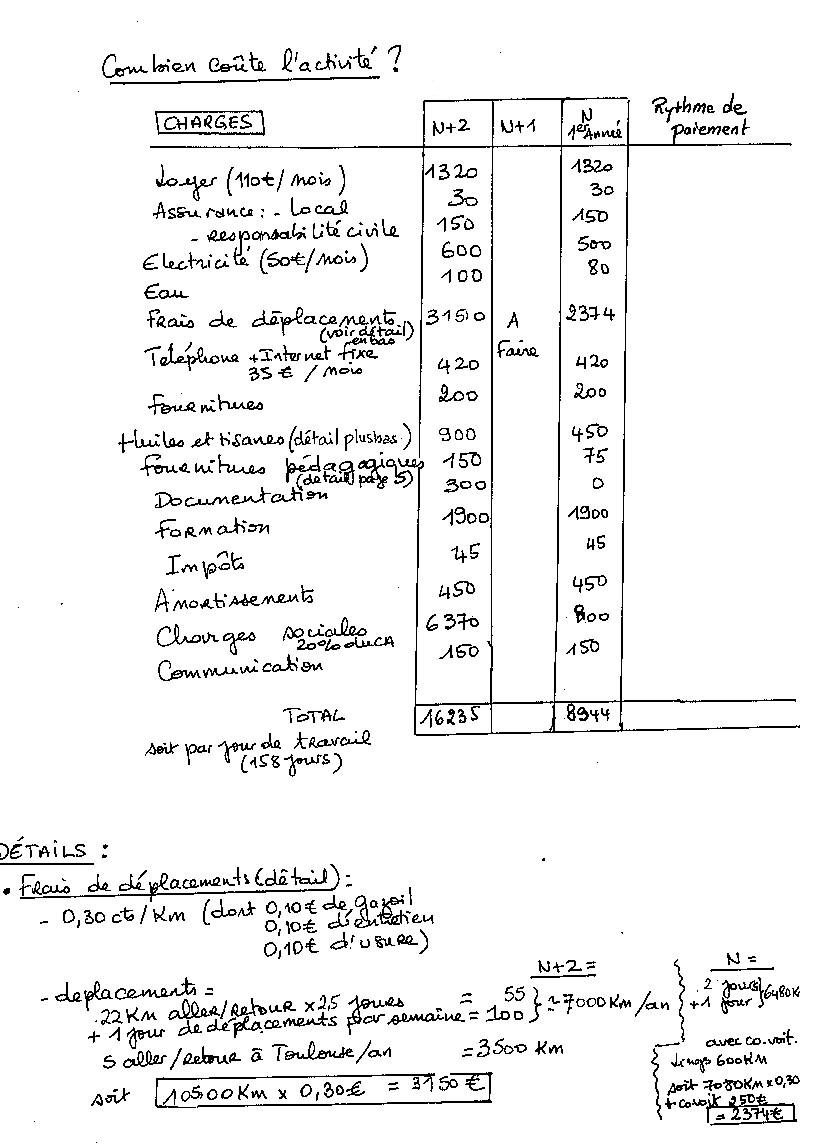 Combien coûte l'activité ?
CHARGES N+2 N+1 N 1er Année Rythme de paiement
Loyer (110€/mois) 1320 1320
Assurance : - Local 30 30
- Responsabilité civile 150 150
Electricité (50€/mois) 600 500
Eau 100 80
Frais de déplacements (voir détail en bas) 3150 A Faire 2374
Téléphone + Internet fixe
35 € / mois 420 420
Fournitures 200 200
Huiles et tisanes (détail plus bas) 900 450
Fournitures pédagogiques (détail page 5) 150 75
Documentation 300 0
Formation 1900 1900
Impôts 45 45
Amortissements 450 450
Charges sociales 20% du CA 6370 800
Communication 150 150
TOTAL 16235 8944
soit par jour de travail
(158 jours)
DÉTAILS :
• Frais de déplacements (détail) :
- 0,30 cts/Km (dont 0,10€ de gazoil
0,10€ d'entretien
0,10€ d'usure)
N+2 = N =
- déplacements =
.22 Km aller/retour x 2,5 jours = 55 } = 7000 Km/an . 2 jours } 6480 K
+ 1 jour de déplacements par semaine = 100 + 1 jour
5 aller/retour à Toulouse/an = 3500 Km
soit 10500 Km x 0,30€ = 3150 €
avec co.voit.
600 KM
soit 7080KM x 0,30
+ covoit 250€
= 2374€